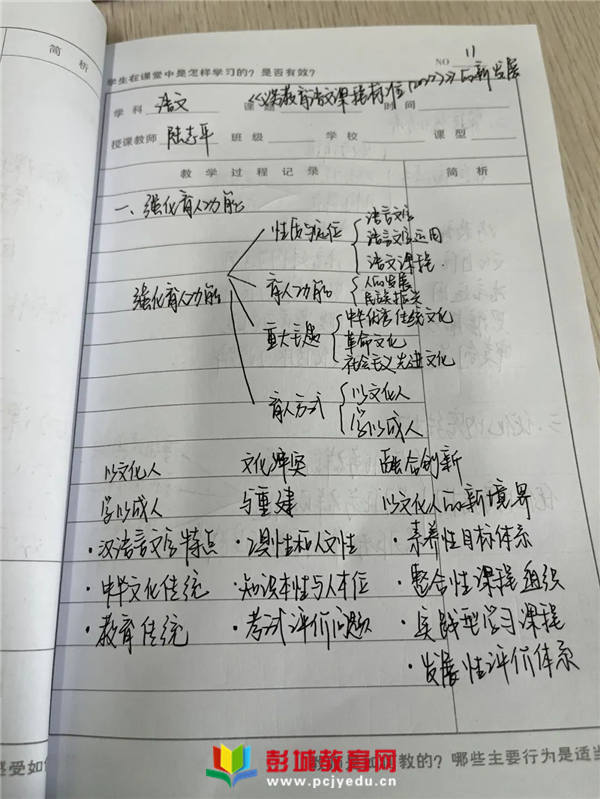 简 析
学生在课堂中是怎样学习的？是否有效？
NO 11
学 科 语文 课 题 《义务教育语文课程标准(2022)》的新发展 时 间
授课教师 陆志平 班 级 学 校 课 型
教 学 过 程 记 录 简 析
一、强化育人功能
强化育人功能
性质与定位
语言文字
语言文字运用
语文课程
育人功能
人的发展
民族振兴
重大主题
中华优秀传统文化
革命文化
社会主义先进文化
育人方式
以文化人
学以成人
以文化人 文化冲突 融合创新
学以成人 与重建 以文化人的新境界
·汉语言文字特点 ·工具性和人文性 ·素养性目标体系
·中华文化传统 ·知识本性与人本位 ·整合性课程组织
·教育传统 ·考试评价问题 ·实践型学习课程
·发展性评价体系
彭城教育网
www.pcjyedu.cn
教的？哪些主要行为是适当